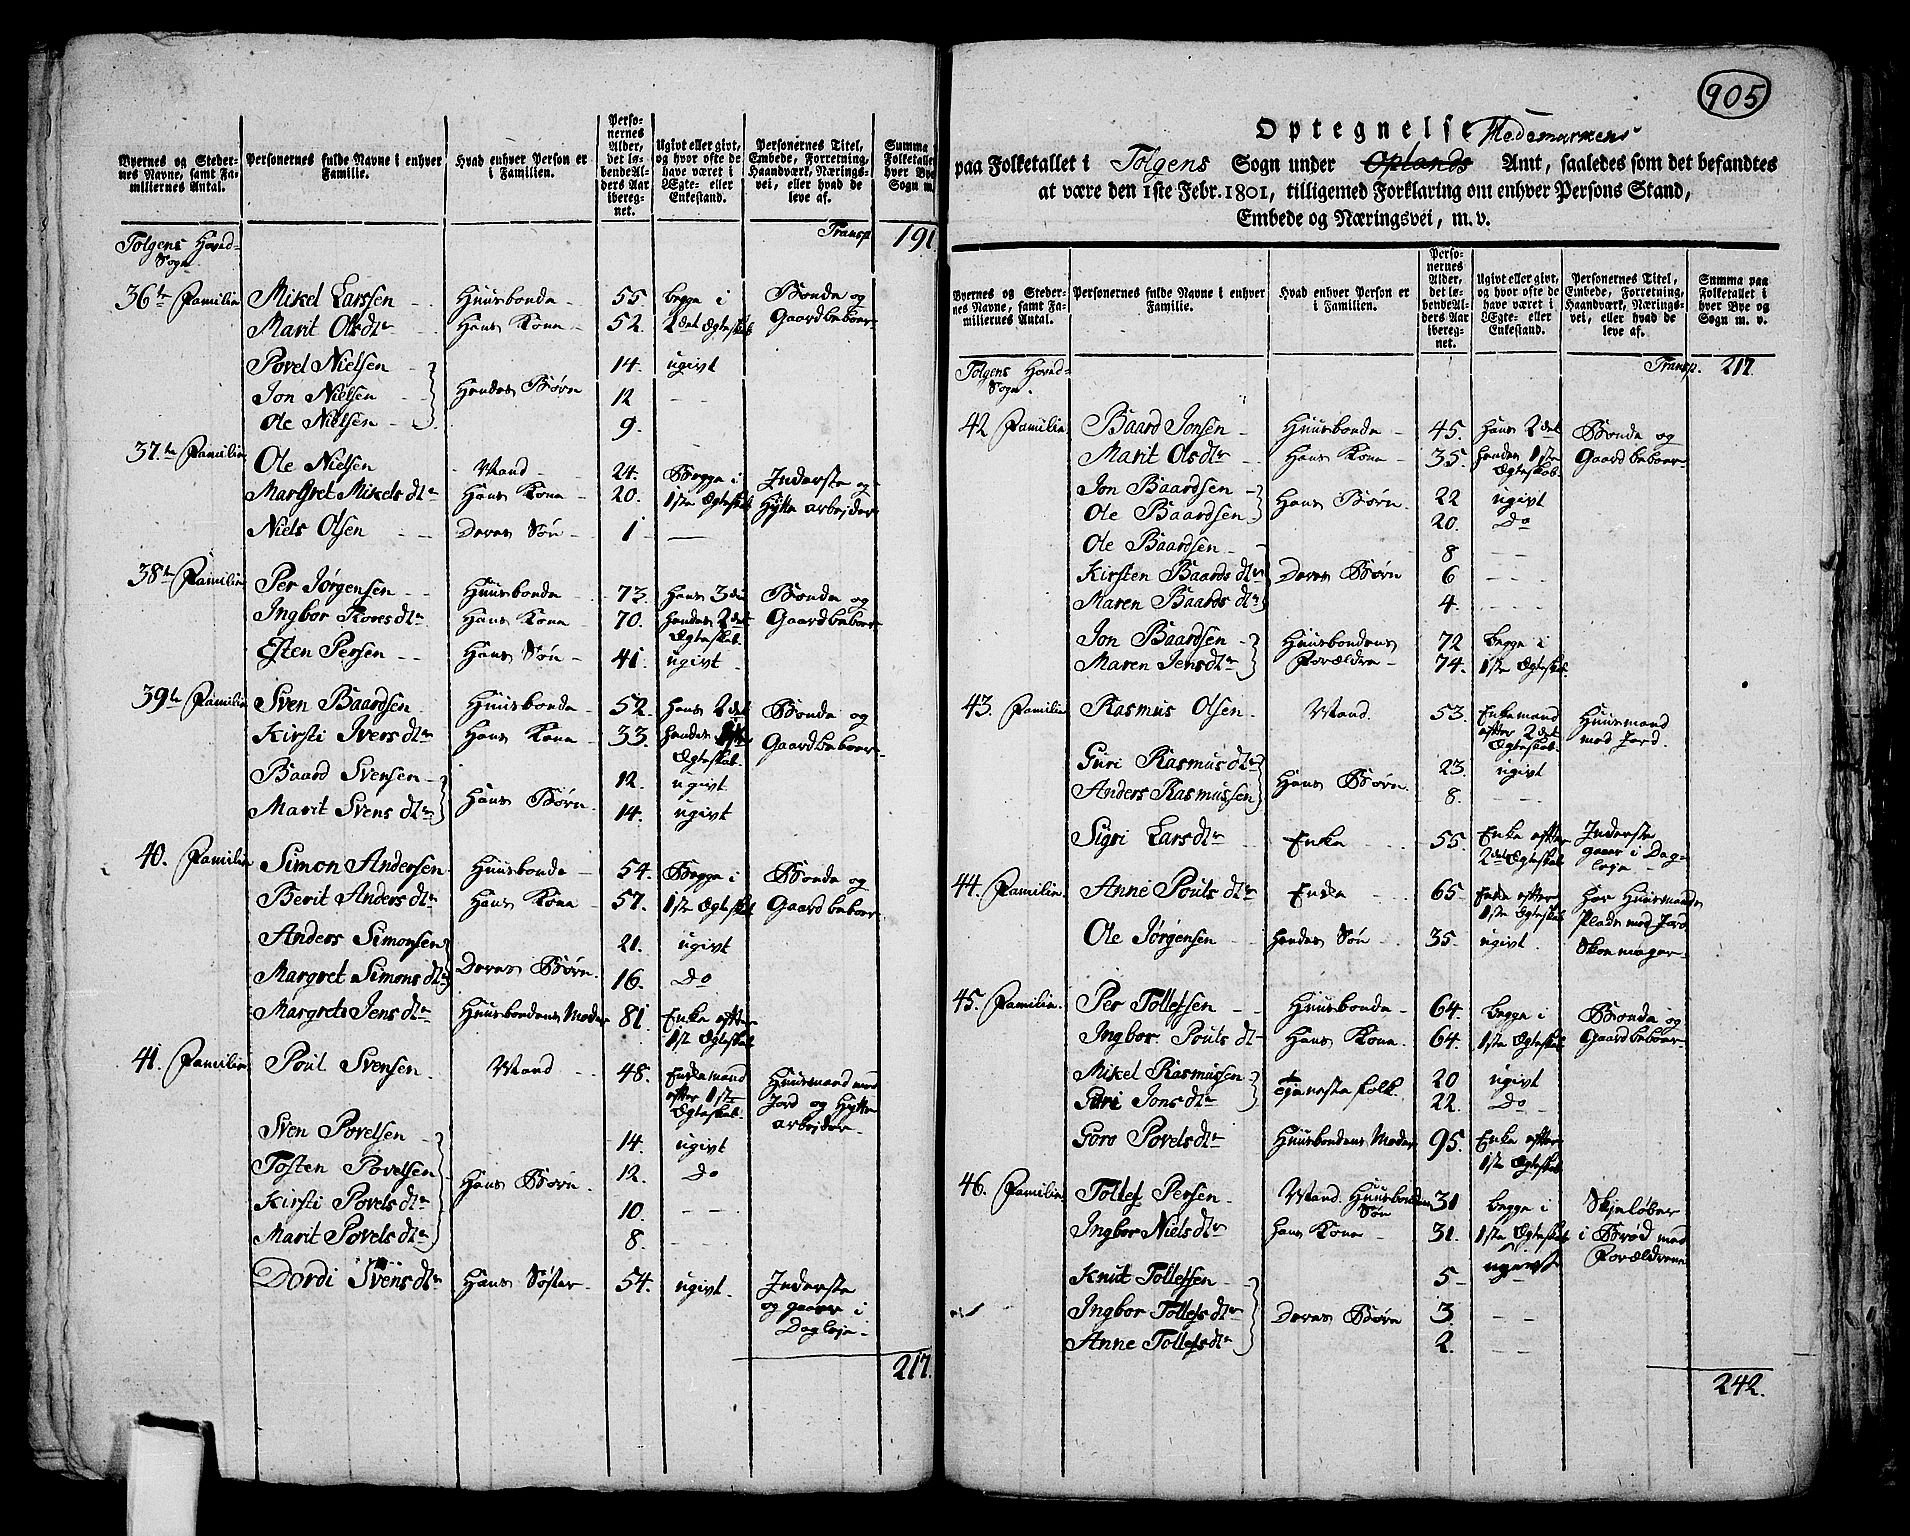 Byernes og Steder-
nes Navne, samt Fa-
miliernes Antal.
Personernes fulde Navne i enhver
Familie.
Hvad enhver Person er
i Familien.
Perso-
nernes
Alder,
det lø-
bende Al-
ders Aar
ibereg-
net.
Ugivt eller givt,
og hvor ofte de
have været i
Ægte- eller
Enkestand.
Personernes Titel,
Embede, Forretning,
Haandværk, Nærings-
vei, eller hvad de
leve af.
Summa
Folketallet
hver Bye
Sogn m.
Tolgens Hoved- Transp 191
Sogn
36te Familie Mikel Larssen Huusbonde 55 begge i Bonde og
Marit Olsdtr Hans Kone 52. 2det Ægteskab Gaardbeboer
Povel Nielsen 14. ugivt
Jon Nielsen Hendes Børn 12 - -
Ole Nielsen 9.
37.te Familie Ole Nielsen Mand 24. Begge i Inderste og
Margret Mikelsdtr Hans Kone 20. 1ste Ægteskab Hytte arbejder
Niels Olsen Deres Søn 1
38te Familie Per Jørgensen Huusbonde 73. Hans 3die Bonde og
Ingbor Toresdtr Hans Kone 70. Hendes 2det Gaardbeboer
Ægteskab.
Esten Persen Hans Søn 41. ugivt
39te Familie Sven Baardsen Huusbonde 52. Hans 2det Bonde og
Kirsti Iversdtr Hans Kone 33. Hendes 1ste Gaardbeboer
Ægteskab.
Baard Svensen 12. ugivt
Hans Børn
Marit Svensdtr 14. ugivt
40. Familie Simon Andersen Huusbonde 54. Begge i Bonde og
Berit Andersdtr Hans Kone 57. 1ste Ægteskab Gaardbeboer
Anders Simonsen 21. ugivt
Deres Børn
Margret Simonsdtr 16. Do
Margrete Jensdtr Huusbondens Moder 81. Enke efter
1st Ægteskab
41. Familie Poul Svensen Mand 48. Enkemand Huusmand med
efter 1ste Jord og Hytte
Ægteskab. arbejder
Sven Povelsen 14. ugivt
Tosten Povelsen Hans Børn 12. Do
Kirsti Povelsdtr 10. - -
Marit Povelsdtr 8.
Dordi Svensdtr Hans Søster 54. ugivt. Inderste
og gaaer i
Dagleje
217.
905
Optegnelse Hedemarkens
paa Folketallet i Tolgens Sogn under Oplands Amt, saaledes som det befandtes
at være den 1ste Febr. 1801, tilligemed Forklaring om enhver Persons Stand,
Embede og Næringsvei, m. v.
Byernes og Steder-
nes Navne, samt Fa-
miliernes Antal.
Personernes fulde Navne i enhver
Familie.
Hvad enhver Person er
i Familien.
Perso-
nernes
Alder,
det lø-
bende Al-
ders Aar
ibereg-
net.
Ugivt eller givt,
og hvor ofte de
have været i
Ægte- eller
Enkestand.
Personernes Titel,
Embede, Forretning,
Haandværk, Nærings-
vei, eller hvad de
leve af.
Summa paa
Folketallet i
hver Bye og
Sogn m. v.
Tolgens Hoved- Transp. 217
Sogn.
42 Familie Baard Jonsen Huusbonde 45. Hans 2det Bonde og
Marit Olsdtr Hans Kone 35. Hendes 1ste Gaardbeboer
Ægteskab.
Jon Baardsen 22 ugivt
Hans Børn.
Ole Baardsen 20. Do
Ole Baardsen 8
Kirsten Baardsdtr Deres Børn 6
Maren Baardsdtr 4.
Jon Baardsen Huusbondens 72 begge i
Maren Jensdtr Forældre 74. 1ste Ægteskab.
43. Familie Rasmus Olsen Mand. 53. Enkemand Huusmand
efter 2det med Jord.
Ægteskab.
Guri Rasmusdtr 23. ugivt
Hans Børn
Anders Rasmussen 8.
Sigri Larsdtr Enke 55. Enke efter Inderste
2det Ægteskab gaaer i Dag-
leje
44. Familie. Anne Poulsdtr Enke 65. Enke efter har Huusmands
1ste Ægteskab Plads med Jord
Ole Jørgensen Hendes Søn 35. ugivt. Skoemager
45. Familie. Per Tollefsen Huusbonde 64. begge i Bonde og
Ingbor Poulsdtr Hans Kone 64. 1ste Ægteskab Gaardbeboer
Mikel Rasmussen 20 ugivt
Tjeneste folk.
Guri Jonsdtr 22. Do
Goro Povelsdtr Huusbondens Moder 95. Enke efter
1ste Ægteskab
46. Familie Tollef Persen Mand. Huusbondens Søn 31 begge i Skjeløber
Ingbor Nielsdtr Hans Kone 31. 1ste Ægteskab i Brød med
Forældrene
Knut Tollefsen 5 ugivt
Ingbor Tollefsdtr Deres Børn 3. - -
Anne Tollefsdtr 2.
242.